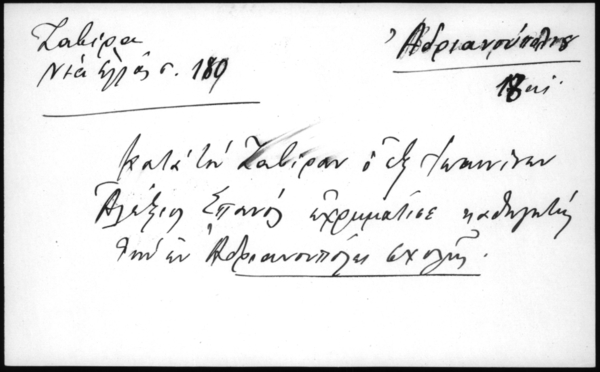 Ζαβίρα
Νέα Ἑλλὰς σ. 180
Ἀδριανούπολις
18 αἰ.
Κατὰ τὸν Ζαβίραν ὁ ἐξ Ἰωαννίνων
Ἀλέξιος Σπανὸς ἐχρημάτισε καθηγητὴς
τῆς ἐν Ἀδριανουπόλει σχολῆς.